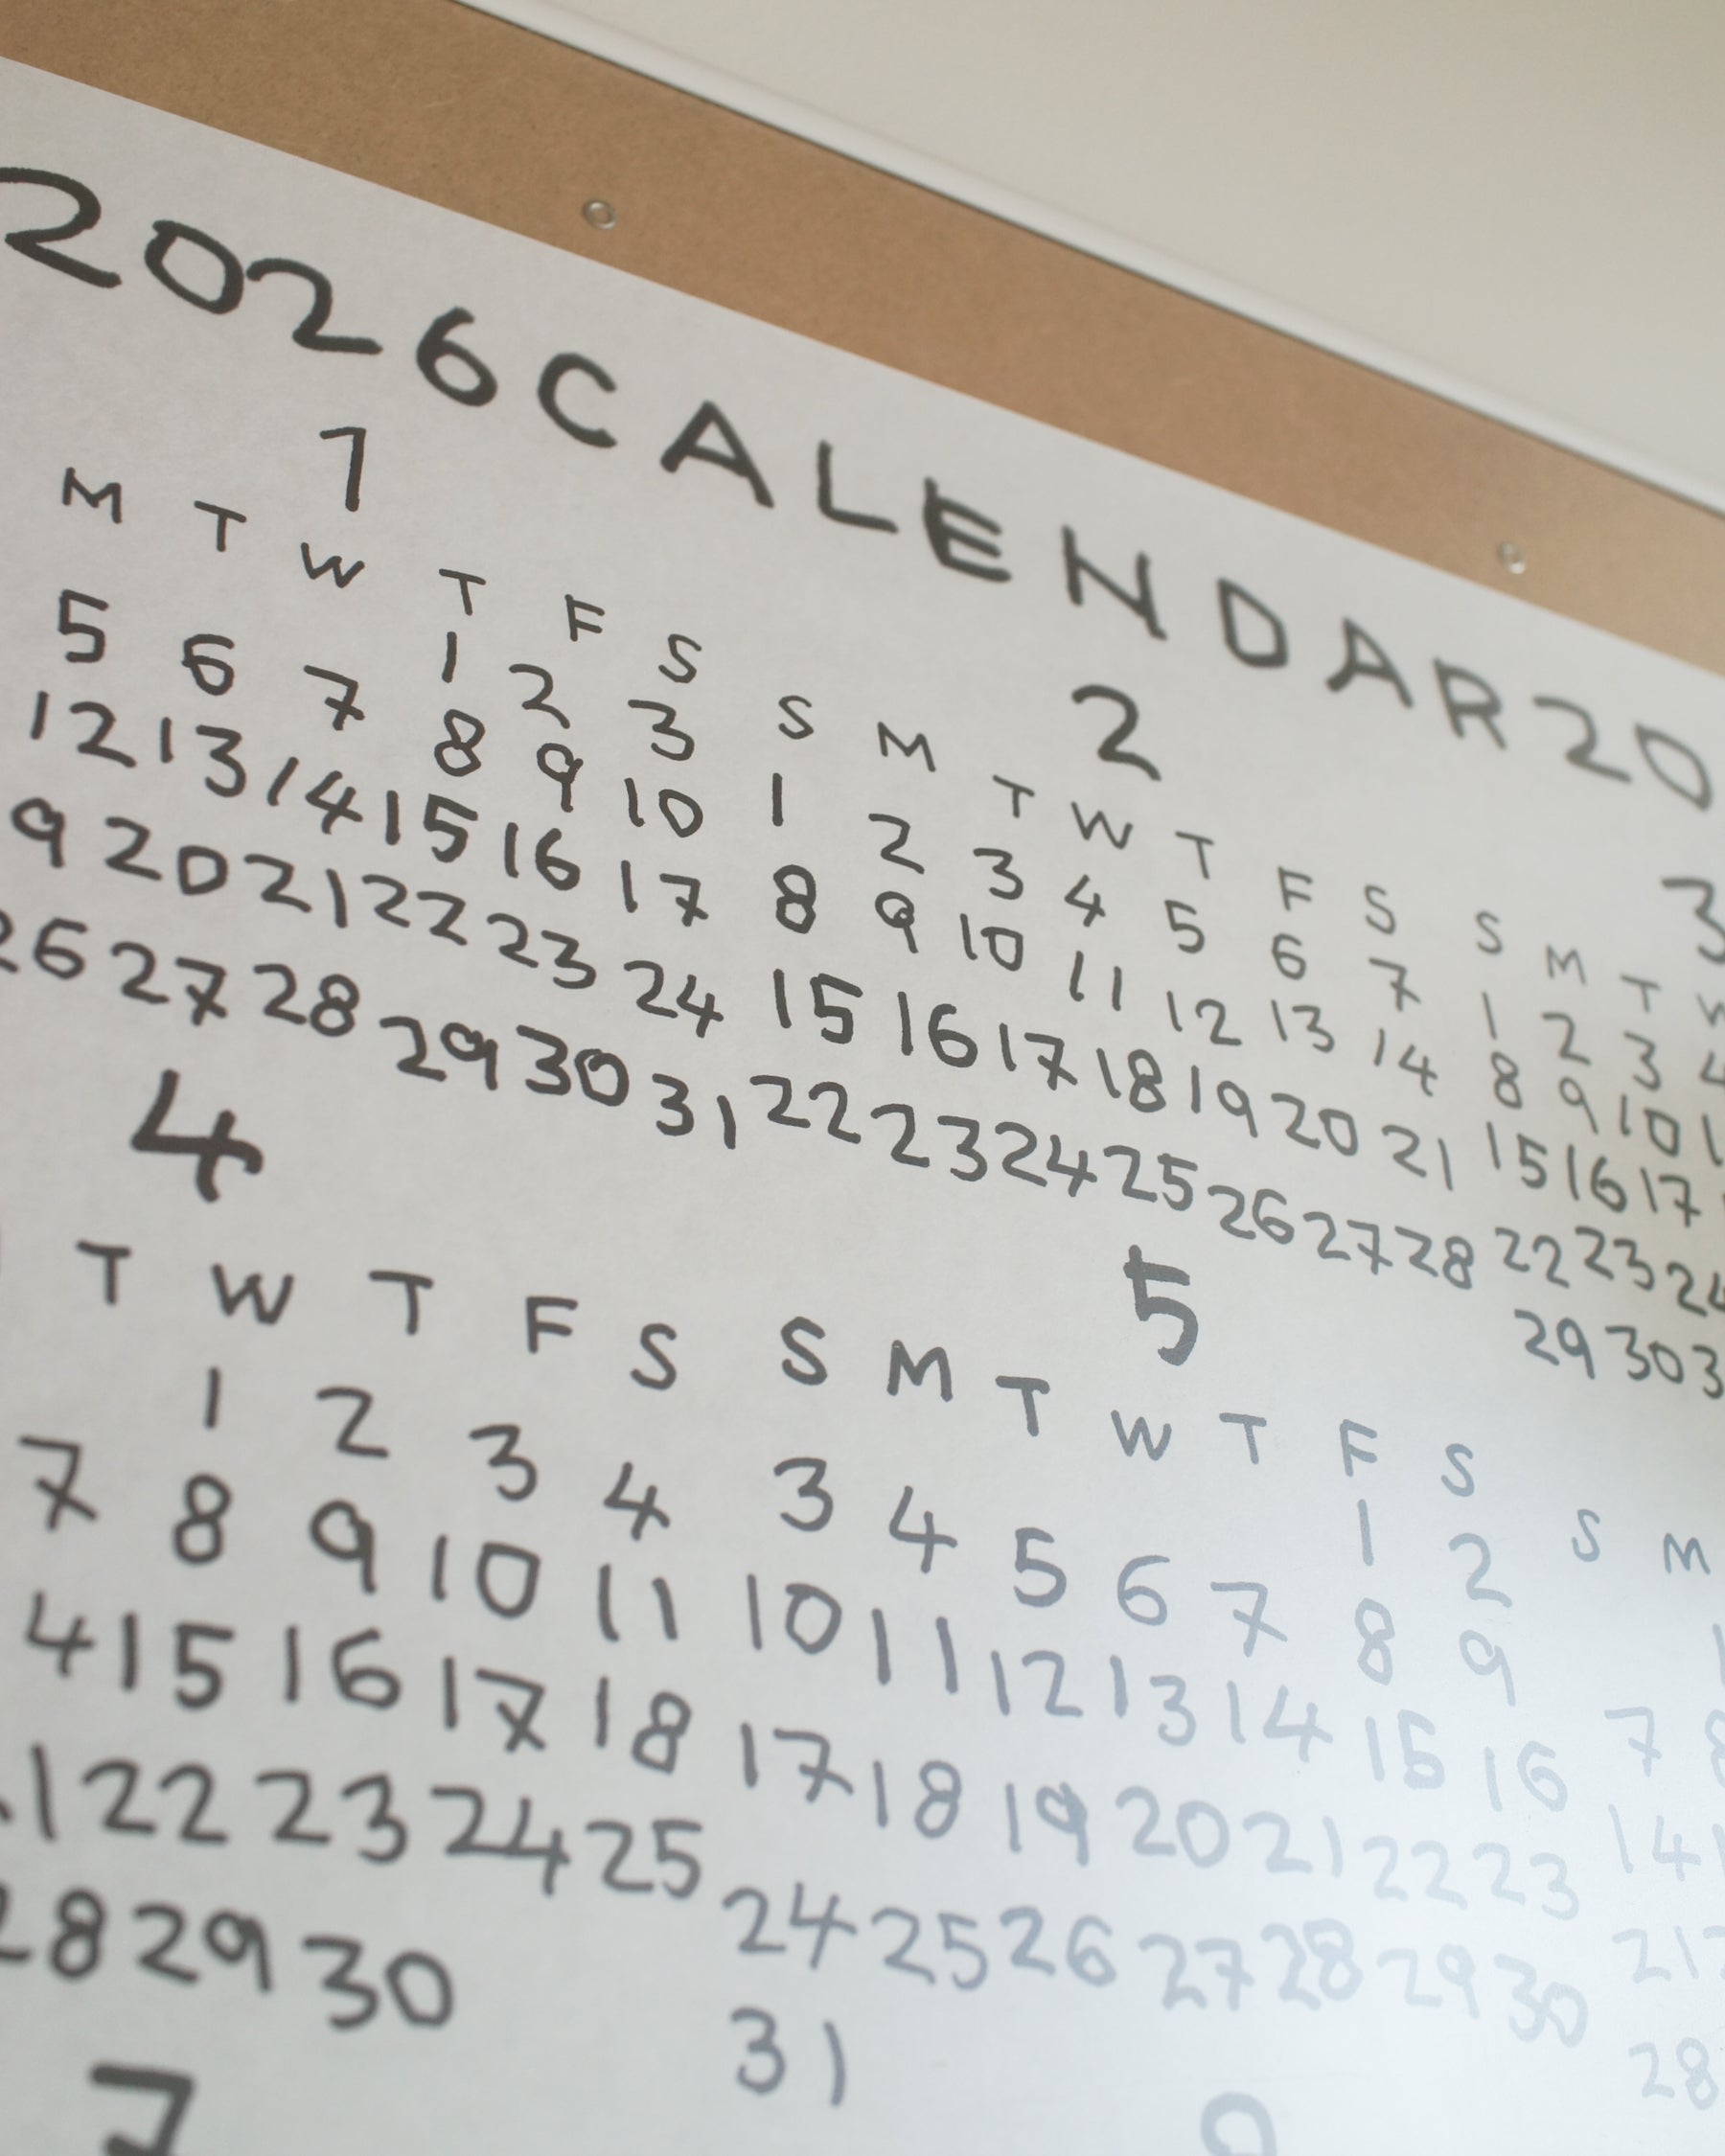 2026CALENDAR20
1
M T W T F S
1 2 3
5 6 7 8 9 10
12 13 14 15 16 17
9 20 21 22 23 24
26 27 28 29 30 31
2
S M T W T F S
1 2 3 4 5 6 7
8 9 10 11 12 13 14
15 16 17 18 19 20 21
22 23 24 25 26 27 28
3
S M T W
1 2 3 4
8 9 10 1
15 16 17
22 23 24
29 30 3
4
T W T F S
1 2 3 4
7 8 9 10 11
4 15 16 17 18
1 22 23 24 25
28 29 30
5
S M T W T F S
1 2
3 4 5 6 7 8 9
10 11 12 13 14 15 16
17 18 19 20 21 22 23
24 25 26 27 28 29 30
31
S M
1
7 8
14 1
21 2
28
7